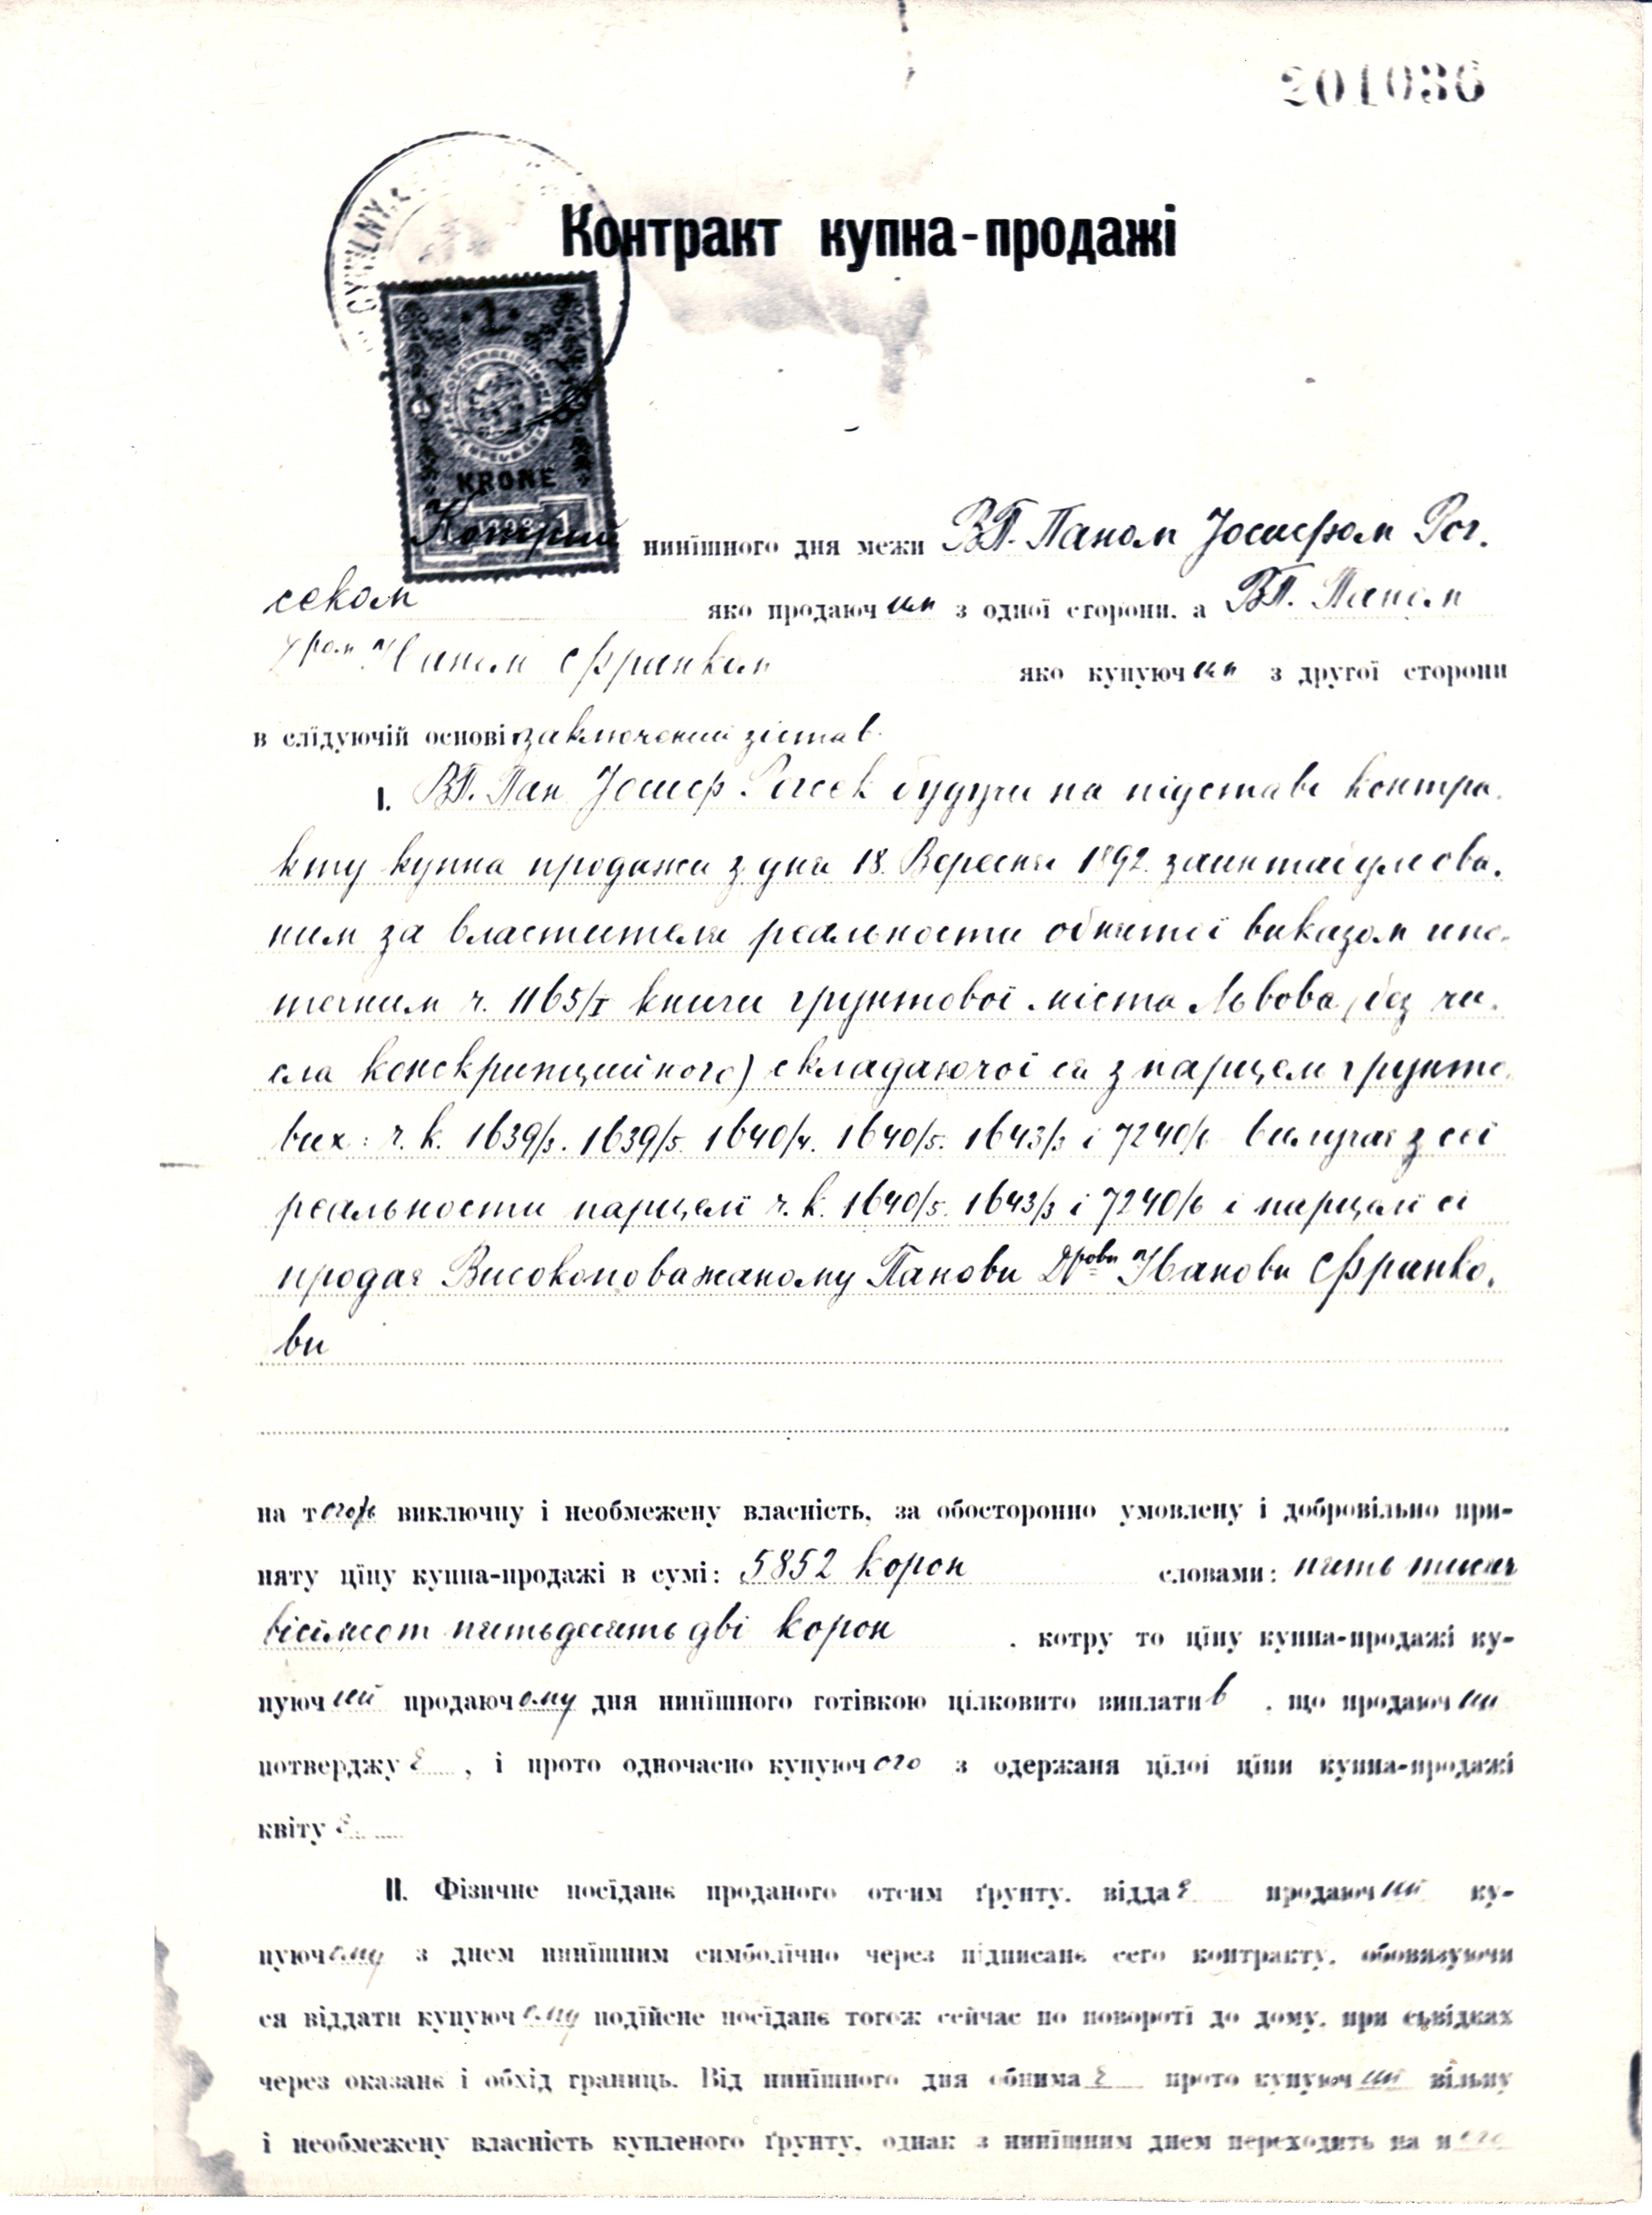 201036
CYWILNY
Контракт купна-продажі
1
KRONE
1898 1
Котрий нинїшного дня межи ВП. Паном Йосифом Рог.
секом яко продаючим з одної сторони, а ВП. Паном
Дром Іваном Франком яко купуючим з другої сторони
в слїдуючій основі заключений зістав.
I. ВП. Пан Йосиф Рогсек будучи на підставі контра.
кту купна продажи з дня 18. Вересня 1892. заинтабульова.
ним за властителя реальности обнятої виказом ипо.
течним ч. 1165/I книги ґрунтової міста Львова (без чи.
сла конскрипцийного) складаючої ся з парцел ґрунто.
вих: ч. к. 1639/3. 1639/5. 1640/4. 1640/5. 1643/3 і 7240/6 вилучає з сеї
реальности парцелї ч. к. 1640/5. 1643/3 і 7240/6 і парцелї сї
продає Високоповажаному Панови Дрови Іванови Франко.
ви
на тогож виключну і необмежену власність, за обосторонно умовлену і добровільно при-
няту ціну купна-продажі в сумі: 5852 корон словами: пять тисяч
вісїмсот пятьдесять дві корон , котру то цїну купна-продажі ку-
пуючий продаючому дня нинїшного готівкою цїлковито виплатив , що продаючий
потверджує , і прото одночасно купуючого з одержаня цїлої цїни купна-продажі
квітує
II. Фізичне посїданє проданого отсим ґрунту, віддає продаючий ку-
пуючому з днем нинїшним символїчно через підписанє сего контракту, обовязуючи
ся віддати купуючому подїйсне посїданє тогож сейчас по поворотї до дому, при сьвідках
через оказанє і обхід границь. Від нинїшного дня обнимає прото купуючий вільну
і необмежену власність купленого ґрунту, однак з нинїшним днем переходить на него